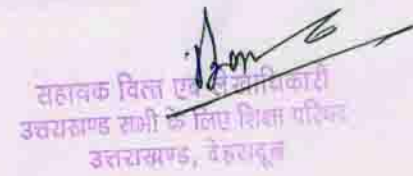 सहायक वित्त एवं लेखाधिकारी
उत्तराखण्ड सभी के लिए शिक्षा परिषद
उत्तराखण्ड, देहरादून